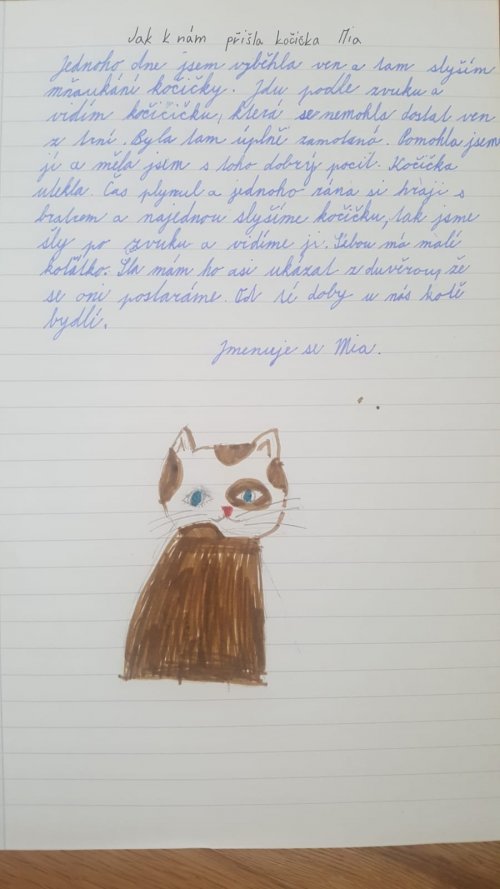 Jak k nám přišla kočička Mia
Jednoho dne jsem vyběhla ven a tam slyším
mňaukání kočičky. Jdu podle zvuku a
vidím kočicičku, která se nemohla dostat ven
z trní. Byla tam úplně zamotaná. Pomohla jsem
jí a měla jsem s toho dobrý pocit. Kočička
utekla. Čas plynul a jednoho rána si hráji s
bratrem a najednou slyšíme kočičku, tak jsme
šly po zvuku a vidíme ji. Sebou má malé
koťátko. Šla nám ho asi ukázat z důvěrou, že
se oni postaráme. Od té doby u nás kotě
bydlí.
Jmenuje se Mia.